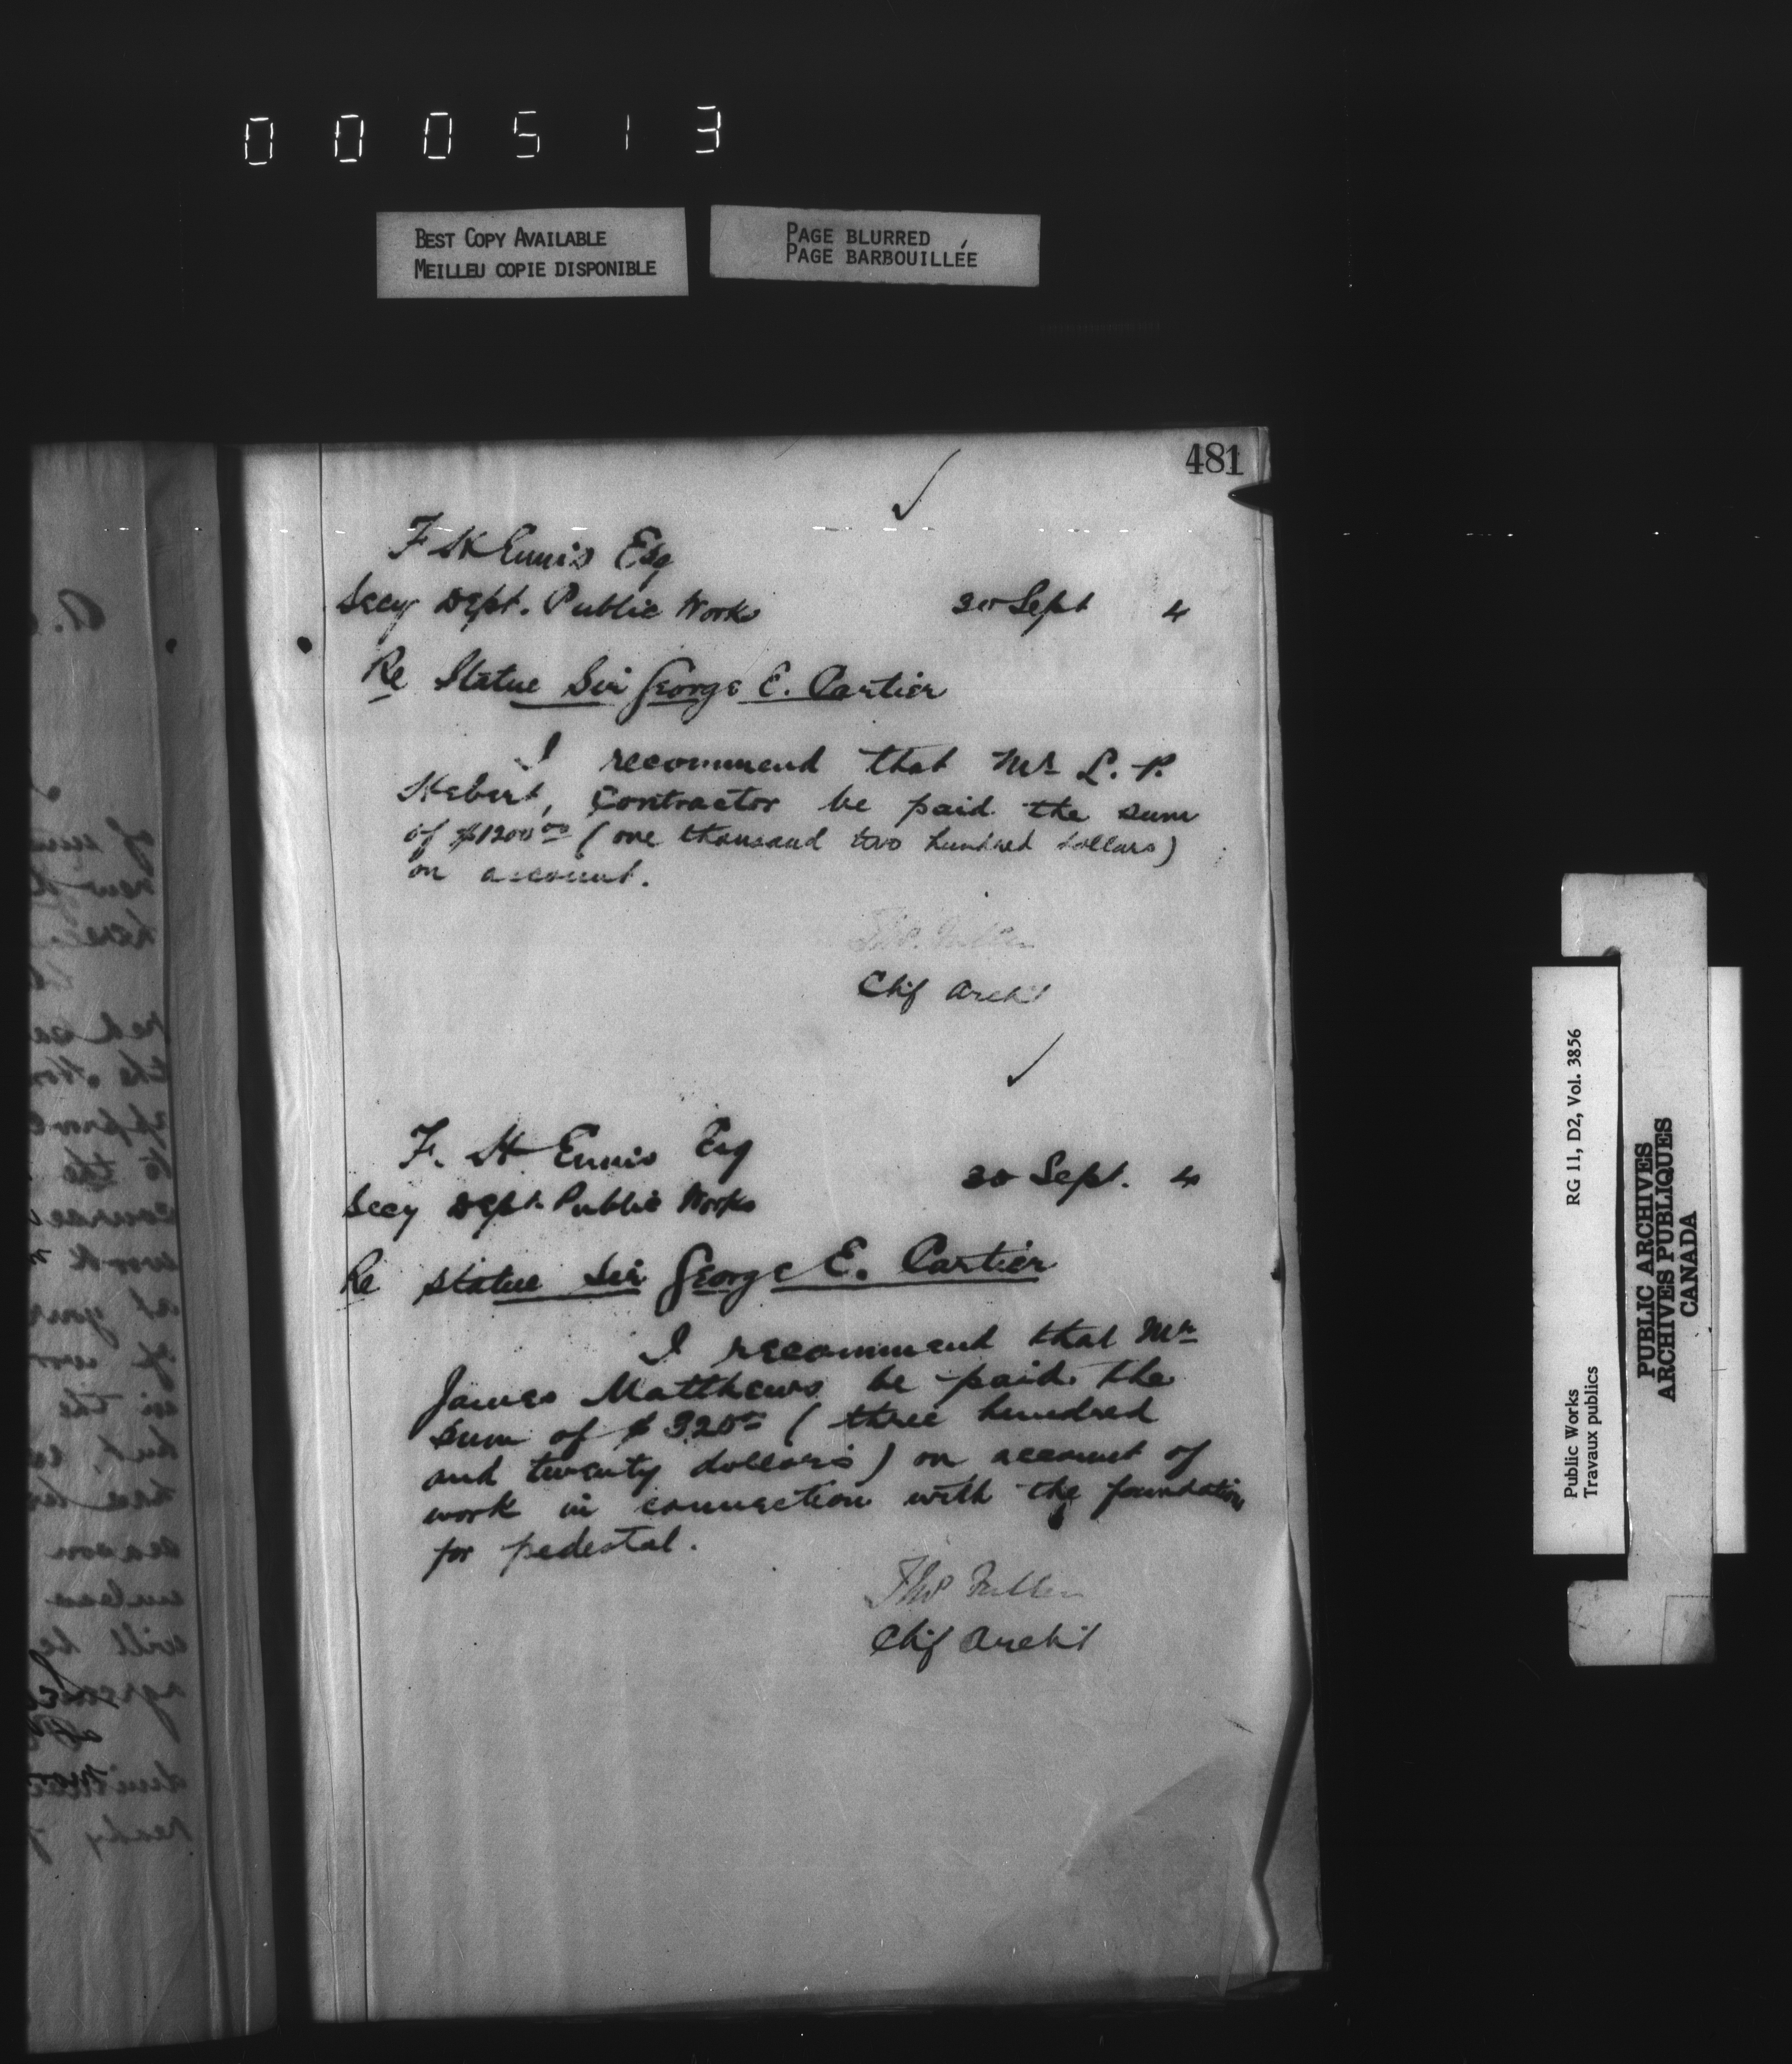 000513
BEST COPY AVAILABLE
MEILLEU COPIE DISPONIBLE
PAGE BLURRED
PAGE BARBOUILLÉE
481
F H Ennis Esq
Secy Dept. Public Works
30 Sept 4
Re Statue Sir George E. Cartier
I recommend that Mr L. P.
Hebert, Contractor be paid the sum
of $1200 00 (one thousand two hundred dollars)
on account.
Thos. Fuller
Chif Archt
F. H Ennis Esq
Secy Dept. Public Works
30 Sept. 4
Re Statue Sir George E. Cartier
I recommend that Mr
James Matthews be paid the
sum of $320 00 (three hundred
and twenty dollars) on account of
work in connection with the foundation
for pedestal.
Thos Fuller
Chif Archt
Public Works
Travaux publics
RG 11, D2, Vol. 3856
PUBLIC ARCHIVES
ARCHIVES PUBLIQUES
CANADA